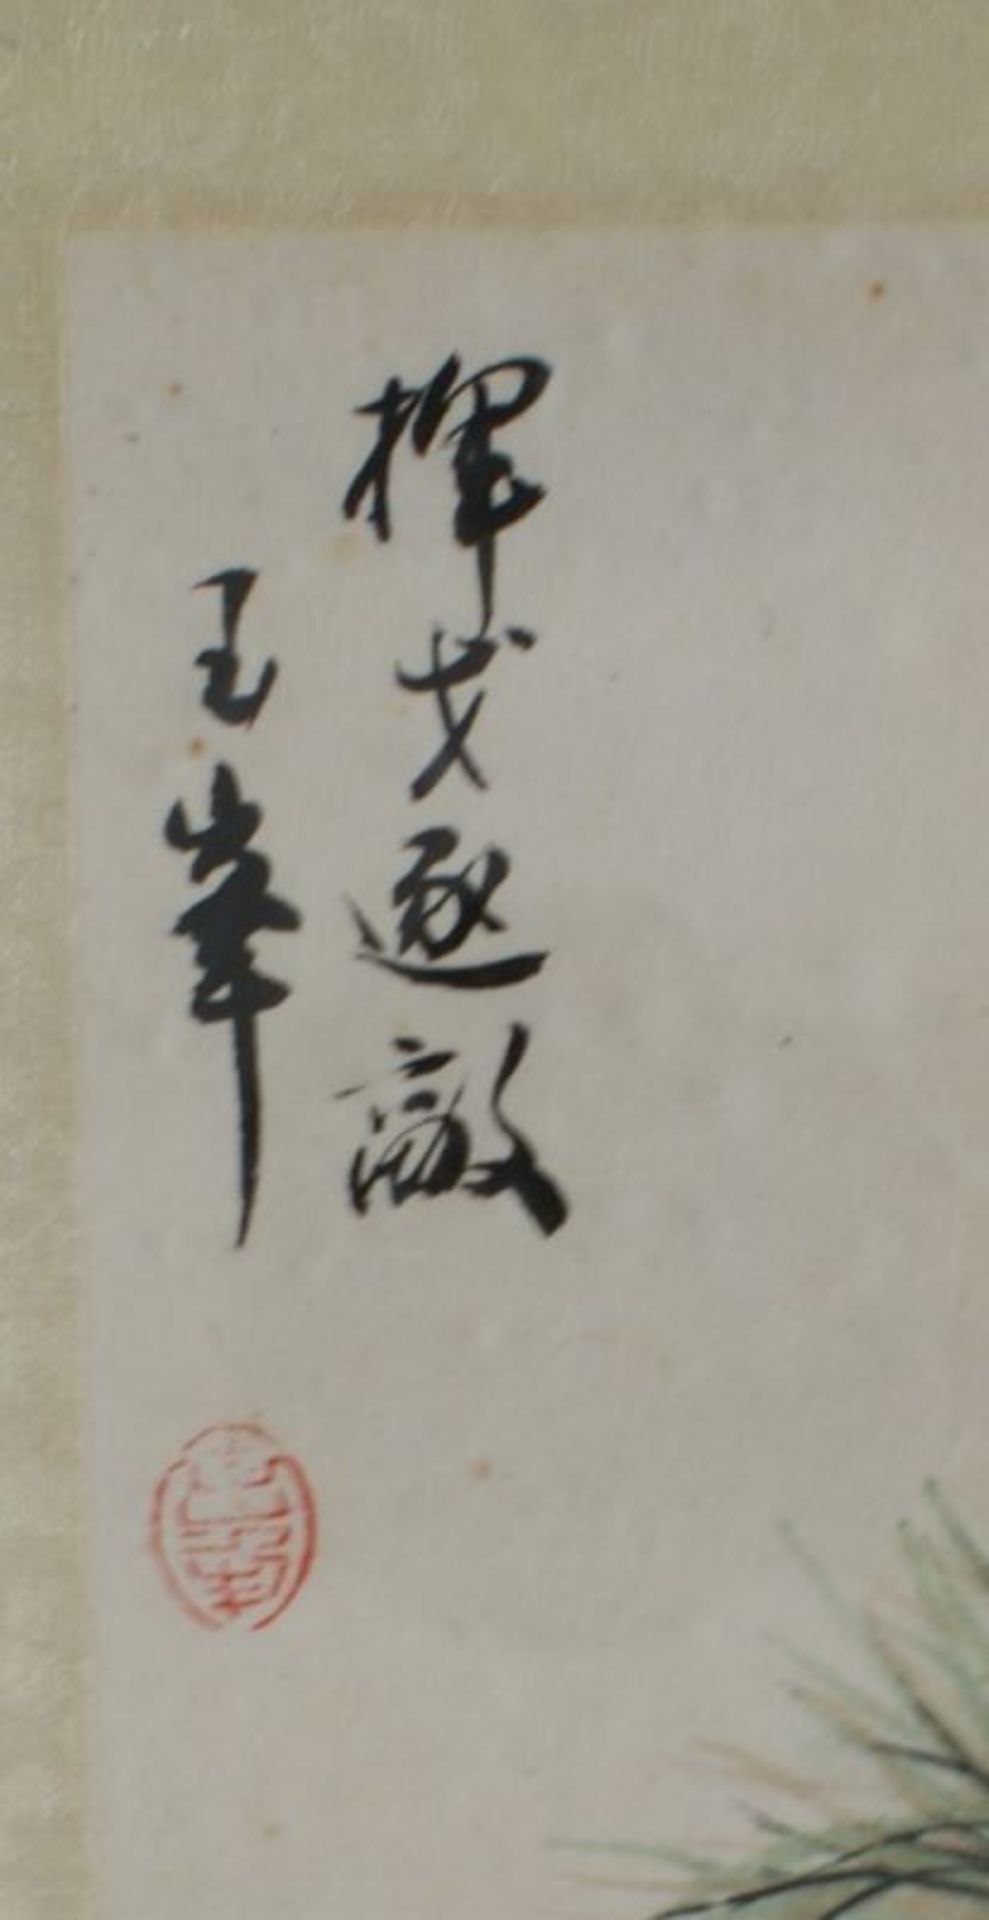 揮戈逐敵
玉峯